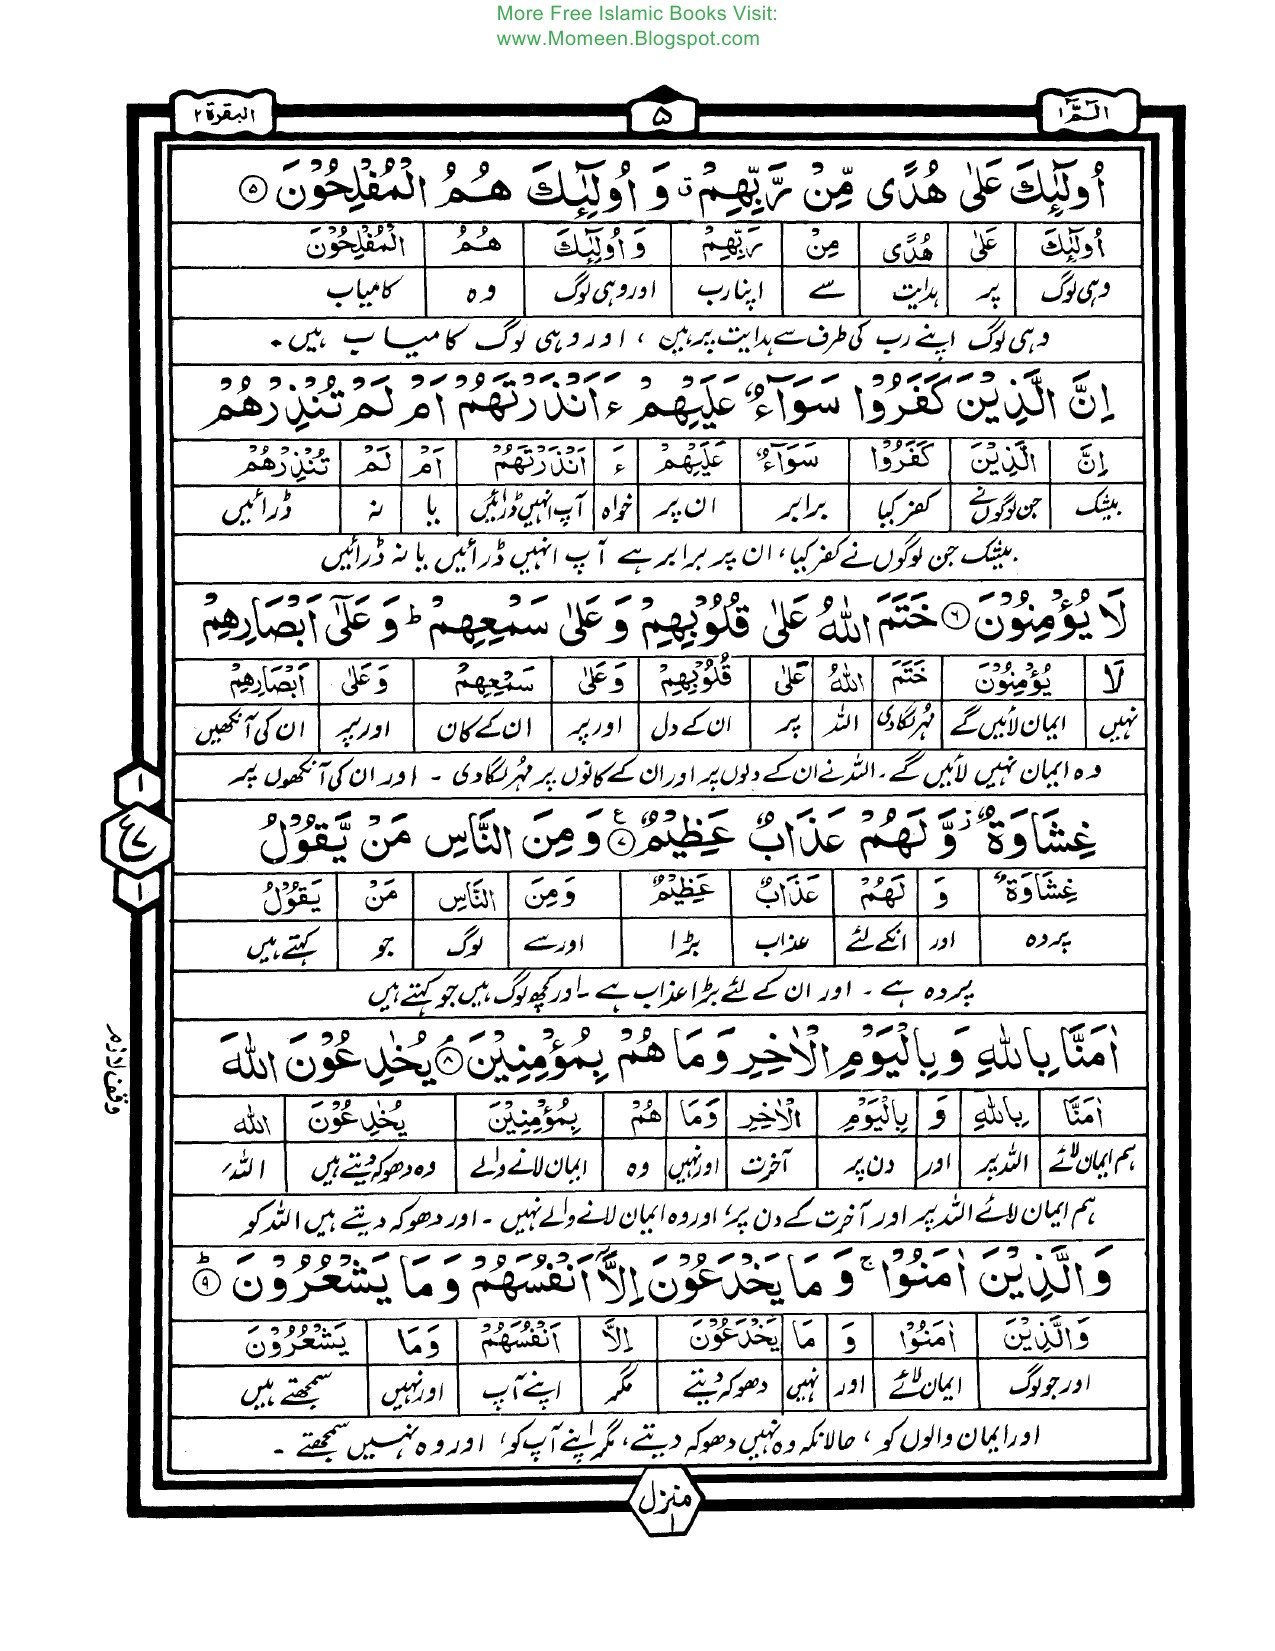 More Free Islamic Books Visit:
www.Momeen.Blogspot.com
الٓـمّٓ ۱
۵
البقرة ۲
اُولٰٓئِكَ عَلٰى هُدًى مِّنْ رَّبِّهِمْ ۙ وَ اُولٰٓئِكَ هُمُ الْمُفْلِحُوْنَ ۵
اُولٰٓئِكَ عَلٰى هُدًى مِنْ رَبِّهِمْ وَ اُولٰٓئِكَ هُمُ الْمُفْلِحُوْنَ
وہی لوگ پر ہدایت سے اپنا رب اور وہی لوگ وہ کامیاب
وہی لوگ اپنے رب کی طرف سے ہدایت پر ہین ، اور وہی لوگ کامیاب ہیں ۔
اِنَّ الَّذِيْنَ كَفَرُوْا سَوَآءٌ عَلَيْهِمْ ءَاَنْذَرْتَهُمْ اَمْ لَمْ تُنْذِرْهُمْ
اِنَّ الَّذِيْنَ كَفَرُوْا سَوَآءٌ عَلَيْهِمْ ءَ اَنْذَرْتَهُمْ اَمْ لَمْ تُنْذِرْهُمْ
بیشک جن لوگوں نے کفر کیا برابر ان پر خواہ آپ انہیں ڈرائیں یا نہ ڈرائیں
بیشک جن لوگوں نے کفر کیا، ان پر برابر ہے آپ انہیں ڈرائیں یا نہ ڈرائیں
لَا يُؤْمِنُوْنَ ۶ خَتَمَ اللّٰهُ عَلٰى قُلُوْبِهِمْ وَ عَلٰى سَمْعِهِمْ ؕ وَ عَلٰٓى اَبْصَارِهِمْ
لَا يُؤْمِنُوْنَ خَتَمَ اللّٰهُ عَلٰى قُلُوْبِهِمْ وَ عَلٰى سَمْعِهِمْ وَ عَلٰى اَبْصَارِهِمْ
نہیں ایمان لائیں گے مہر لگادی اللہ پر ان کے دل اور پر ان کے کان اور پر ان کی آنکھیں
وہ ایمان نہیں لائیں گے ۔ اللہ نے ان کے دلوں پر اور ان کے کانوں پر مہر لگادی ۔ اور ان کی آنکھوں پر
غِشَاوَةٌ ز وَّ لَهُمْ عَذَابٌ عَظِيْمٌ ۷ ع وَ مِنَ النَّاسِ مَنْ يَّقُوْلُ
غِشَاوَةٌ وَ لَهُمْ عَذَابٌ عَظِيْمٌ وَ مِنَ النَّاسِ مَنْ يَقُوْلُ
پردہ اور انکے لئے عذاب بڑا اور سے لوگ جو کہتے ہیں
پردہ ہے ۔ اور ان کے لئے بڑا عذاب ہے ۔ اور کچھ لوگ ہیں جو کہتے ہیں
اٰمَنَّا بِاللّٰهِ وَ بِالْيَوْمِ الْاٰخِرِ وَ مَا هُمْ بِمُؤْمِنِيْنَ ۸ يُخٰدِعُوْنَ اللّٰهَ
اٰمَنَّا بِاللّٰهِ وَ بِالْيَوْمِ الْاٰخِرِ وَ مَا هُمْ بِمُؤْمِنِيْنَ يُخٰدِعُوْنَ اللّٰهَ
ہم ایمان لائے اللہ پر اور دن پر آخرت اور نہیں وہ ایمان لانے والے وہ دھوکہ دیتے ہیں اللہ
ہم ایمان لائے اللہ پر اور آخرت کے دن پر، اور وہ ایمان لانے والے نہیں ۔ اور دھوکہ دیتے ہیں اللہ کو
وَ الَّذِيْنَ اٰمَنُوْا ۚ وَ مَا يَخْدَعُوْنَ اِلَّآ اَنْفُسَهُمْ وَ مَا يَشْعُرُوْنَ ۹ ؕ
وَ الَّذِيْنَ اٰمَنُوْا وَ مَا يَخْدَعُوْنَ اِلَّا اَنْفُسَهُمْ وَ مَا يَشْعُرُوْنَ
اور جو لوگ ایمان لائے اور نہیں دھوکہ دیتے مگر اپنے آپ اور نہیں سمجھتے ہیں
اور ایمان والوں کو ، حالانکہ وہ نہیں دھوکہ دیتے، مگر اپنے آپ کو، اور وہ نہیں سمجھتے ۔
۱
ع ۷
۱
وقف لازم
منزل ۱